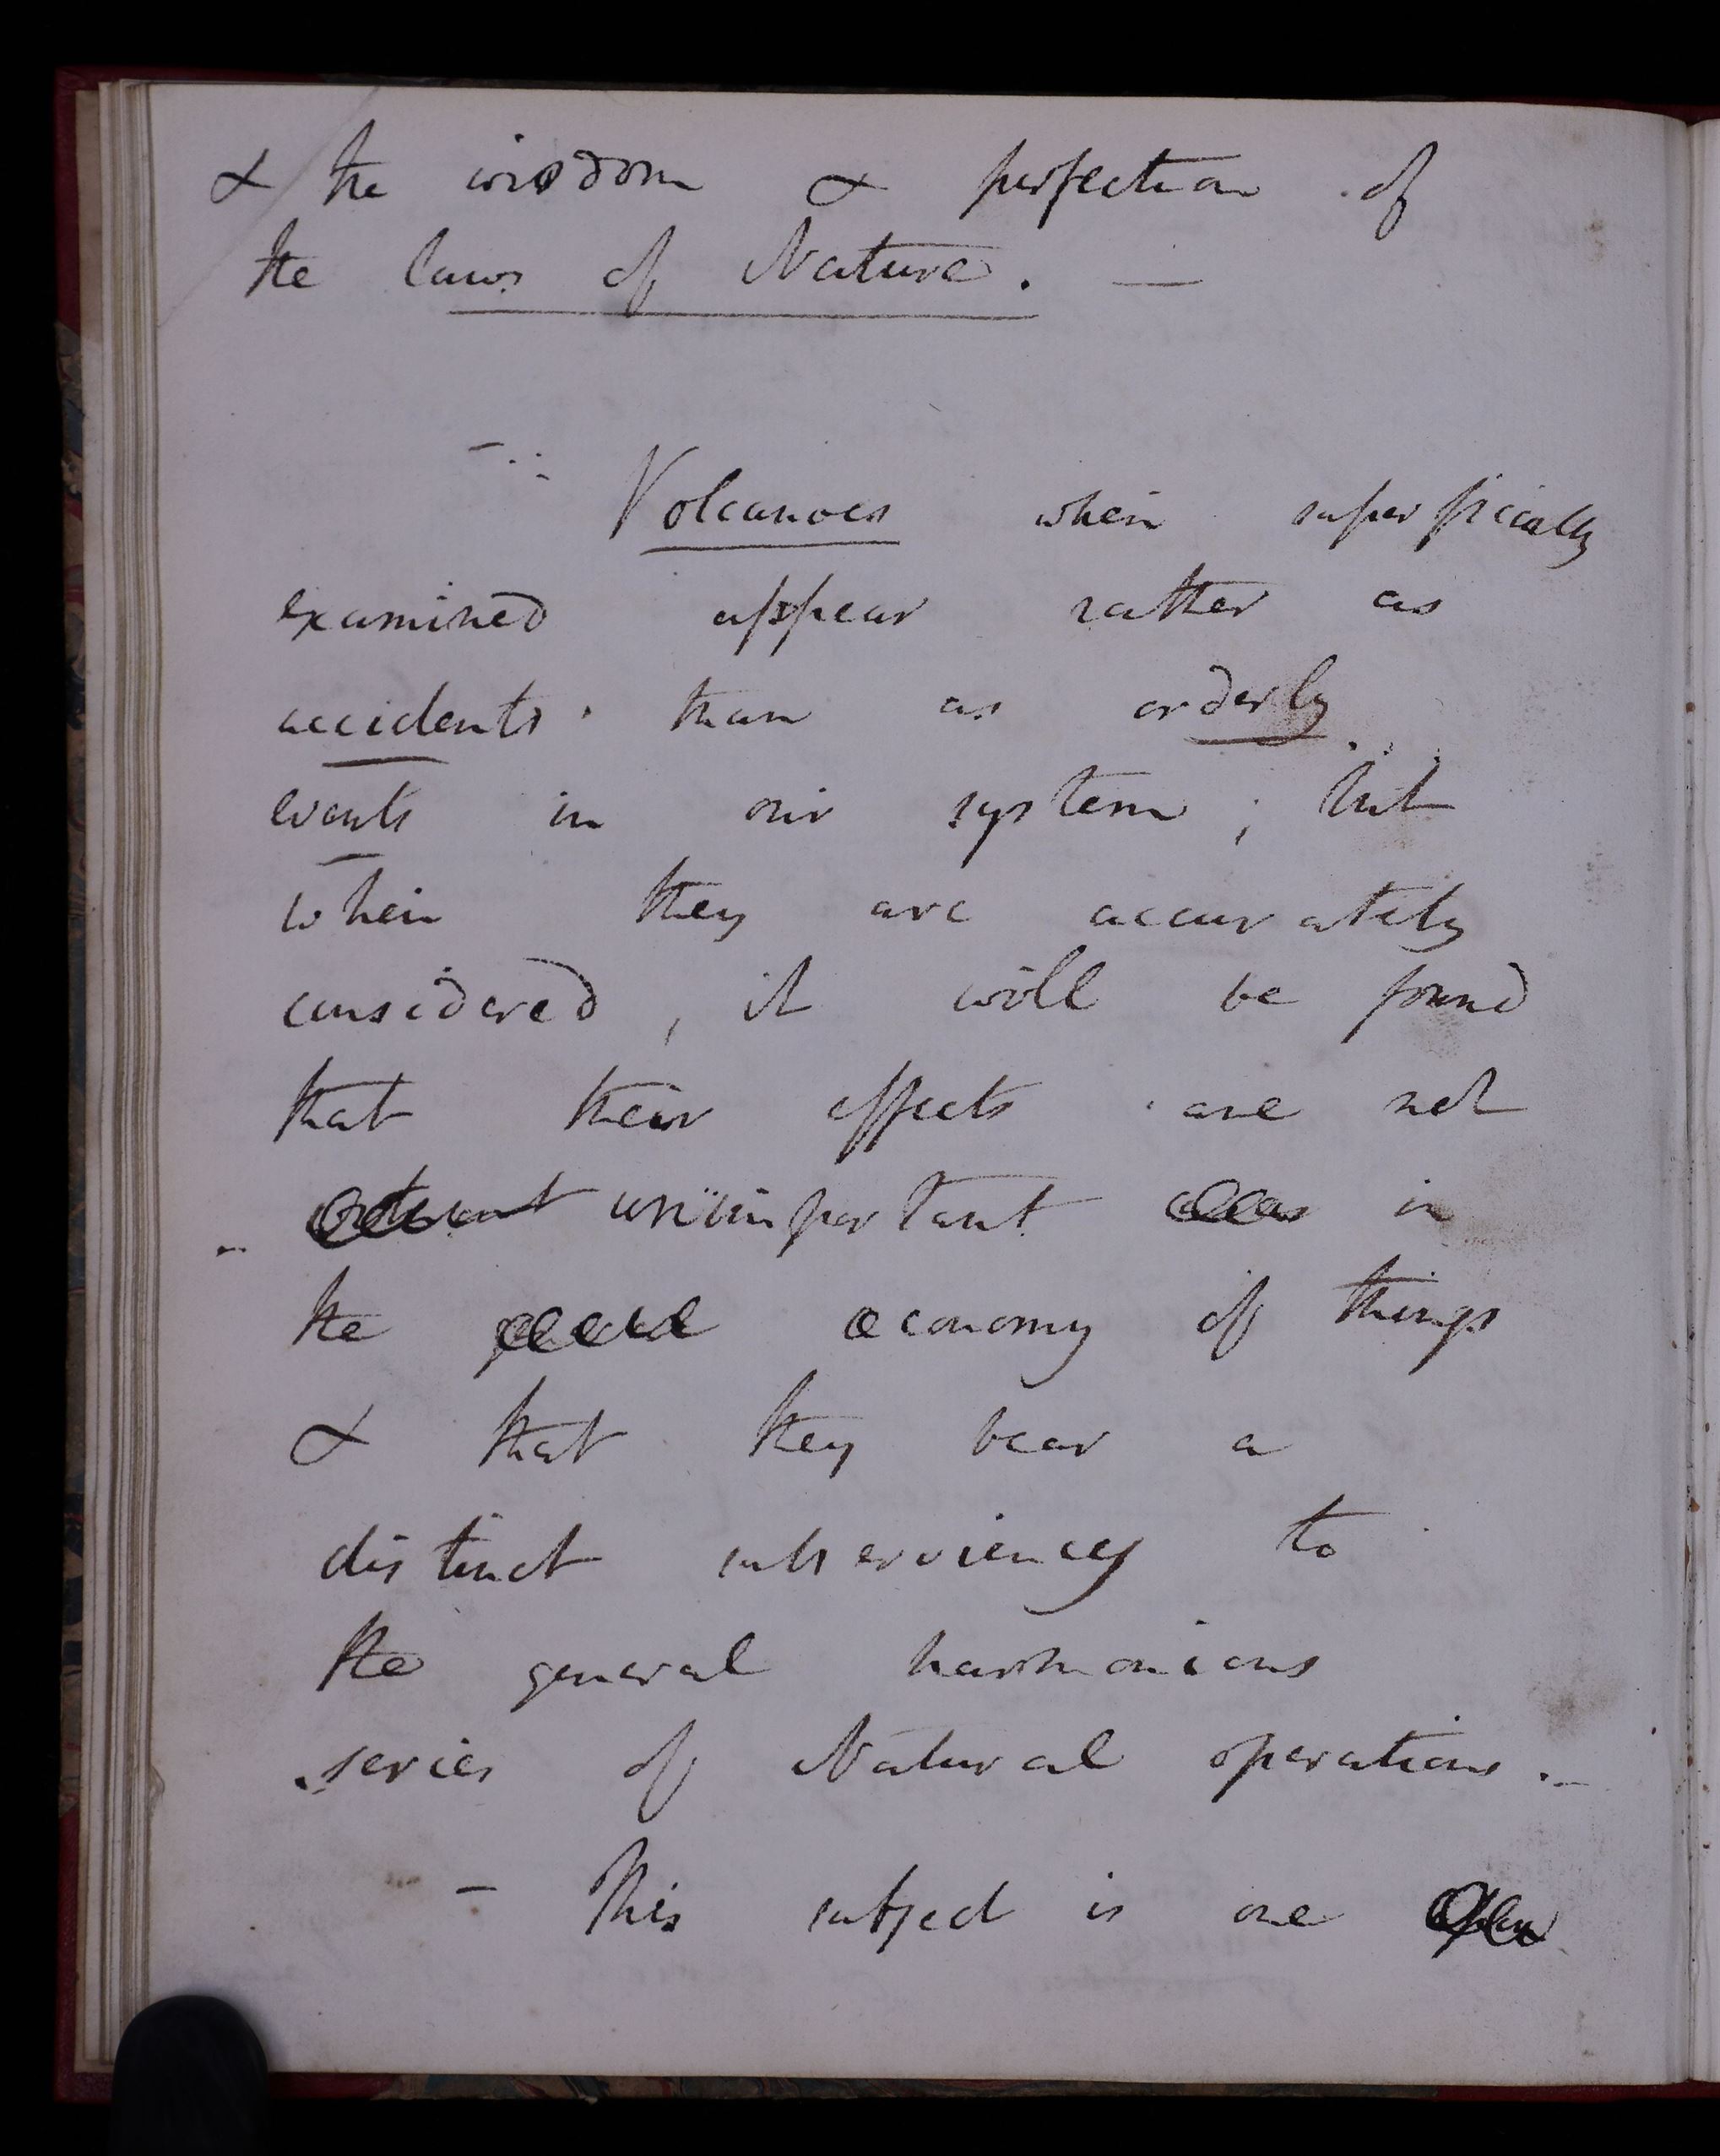 & the wisdom & perfection of
the laws of Nature. —
Volcanoes when superficially
examined appear rather as
accidents than as orderly
events in our system; but
when they are accurately
considered, it will be found
that their effects are not
unimportant in
the œconomy of things
& that they bear a
distinct subserviency to
the general harmonious
series of Natural operations. —
— This subject is one